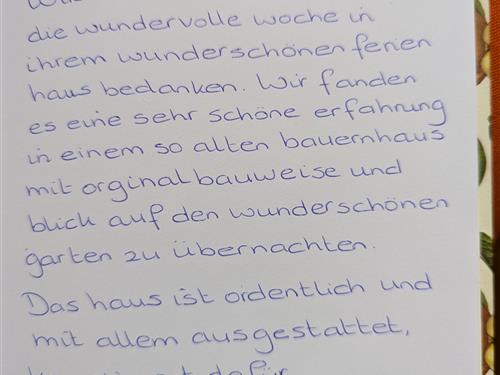 die wundervolle woche in
ihrem wunderschönen ferien
haus bedanken. Wir fanden
es eine sehr schöne erfahrung
in einem so alten bauernhaus
mit orginal bauweise und
blick auf den wunderschönen
garten zu übernachten.
Das haus ist ordentlich und
mit allem ausgestattet,
dafür